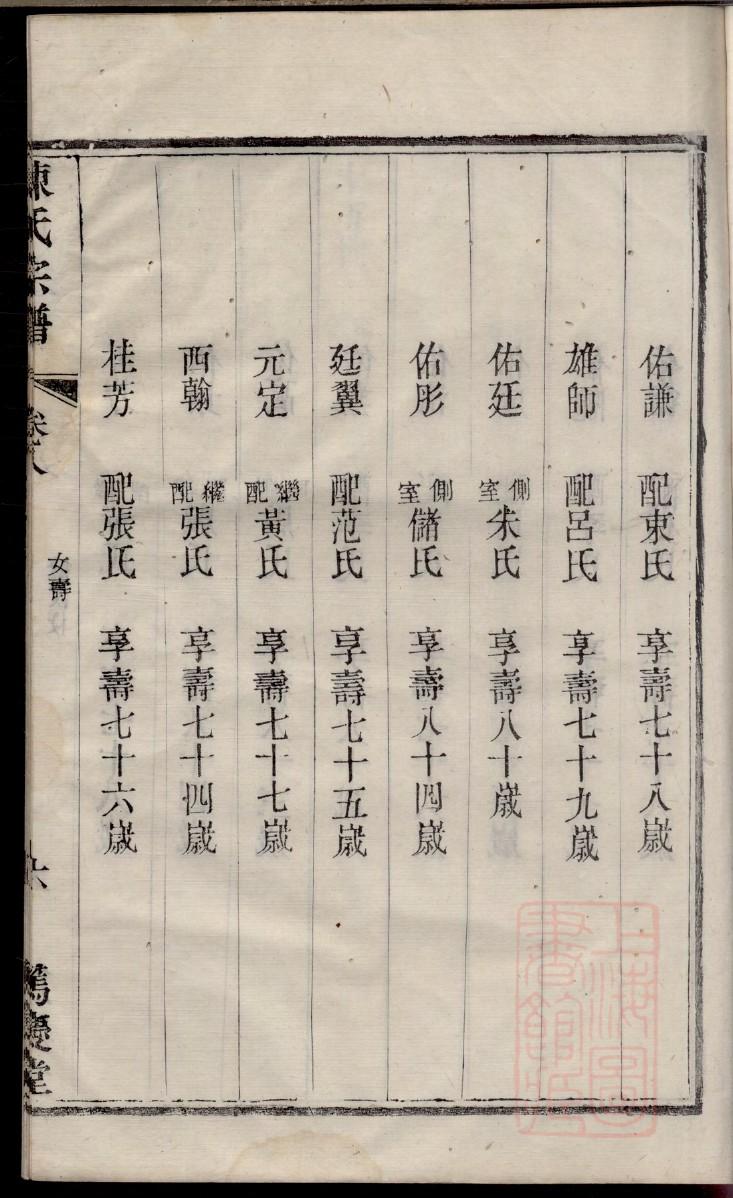 佑謙 配束氏 享壽七十八嵗
雄師 配呂氏 享壽七十九嵗
佑廷 側室朱氏 享壽八十嵗
佑彤 側室儲氏 享壽八十四嵗
廷翼 配范氏 享壽七十五嵗
元定 繼配黃氏 享壽七十七嵗
西翰 繼配張氏 享壽七十四嵗
桂芳 配張氏 享壽七十六嵗
陳氏宗譜 卷八 女壽 六 篤慶堂
上海圖書館藏